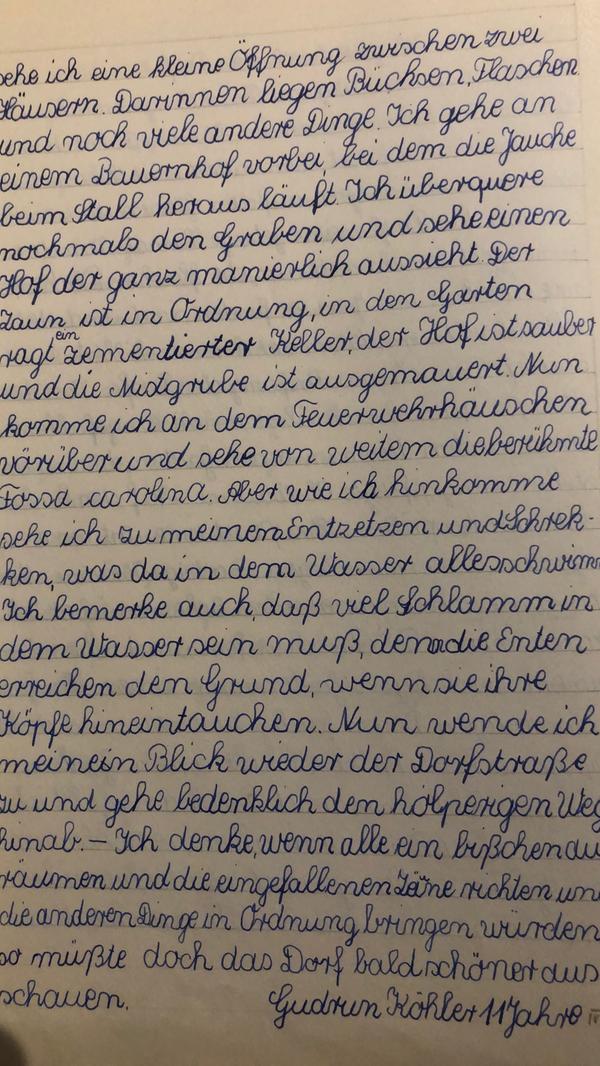 sehe ich eine kleine Öffnung zwischen zwei
Häusern. Darinnen liegen Büchsen, Flaschen
und noch viele andere Dinge. Ich gehe an
einem Bauernhof vorbei, bei dem die Jauche
beim Stall heraus läuft. Ich überquere
nochmals den Graben und sehe einen
Hof der ganz manierlich aussieht. Der
Zaun ist in Ordnung, in den Garten
ragt ein zementierter Keller, der Hof ist sauber
und die Mistgrube ist ausgemauert. Nun
komme ich an dem Feuerwehrhäuschen
vorüber und sehe von weitem die berühmte
Fossa carolina. Aber wie ich hinkomme
sehe ich zu meinen Entzetzen und Schrek-
ken, was da in dem Wasser alles schwimm
Ich bemerke auch, daß viel Schlamm in
dem Wasser sein muß, denn die Enten
erreichen den Grund, wenn sie ihre
Köpfe hineintauchen. Nun wende ich
meinen Blick wieder der Dorfstraße
zu und gehe bedenklich den holperigen Weg
hinab. – Ich denke, wenn alle ein bißchen au
räumen und die eingefallenen Zäune richten un
die anderen Dinge in Ordnung bringen würden
so müßte doch das Dorf bald schöner aus
schauen. Gudrun Köhler 11 Jahre